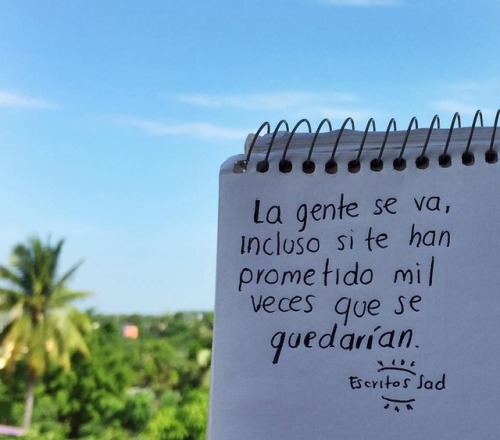 La gente se va,
incluso si te han
prometido mil
veces que se
quedarían.
Escritos Sad